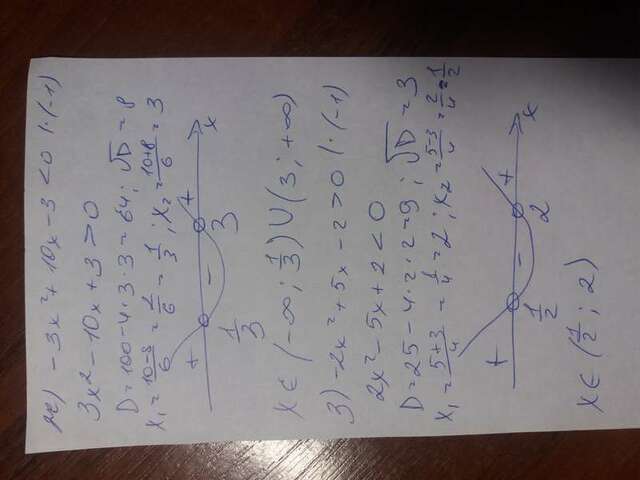 ж) -3x²+10x-3<0 |·(-1)
3x²-10x+3>0
D=100-4·3·3=64; √D=8
x₁=(10-8)/6=2/6=1/3; x₂=(10+8)/6=3
+ - + x
1/3 3
x∈(-∞; 1/3)∪(3; +∞)
з) -2x²+5x-2>0 |·(-1)
2x²-5x+2<0
D=25-4·2·2=9; √D=3
x₁=(5+3)/4=1/4=2; x₂=(5-3)/4=2/4=1/2
+ - + x
1/2 2
x∈(1/2; 2)